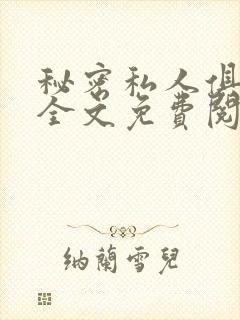 秘密私人俱
全文免費閱
納蘭雪兒